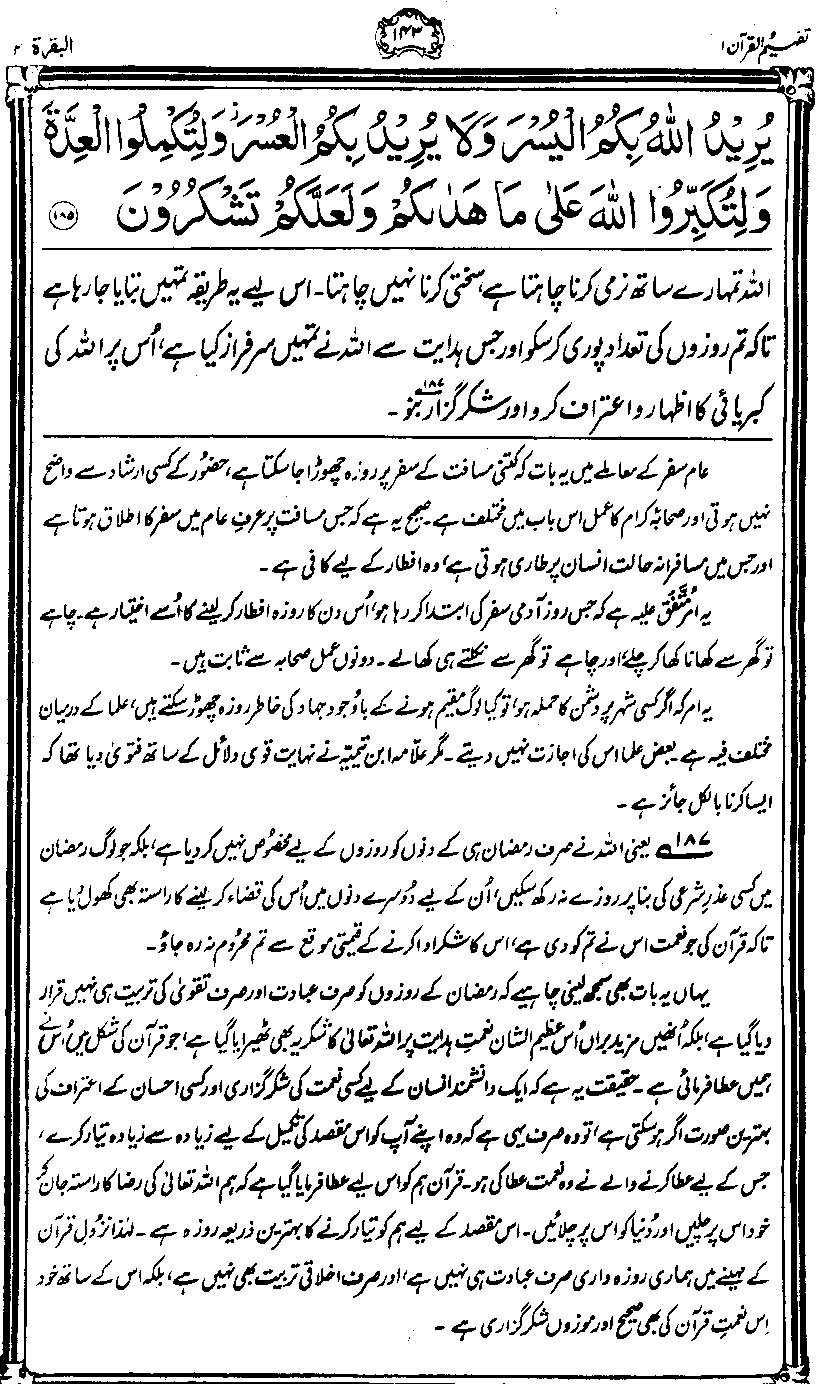 تفہیم القرآن ۱
۱۴۳
البقرۃ ۲
يُرِيْدُ اللّٰهُ بِكُمُ الْيُسْرَ وَلَا يُرِيْدُ بِكُمُ الْعُسْرَ وَلِتُكْمِلُوا الْعِدَّةَ
وَلِتُكَبِّرُوا اللّٰهَ عَلٰى مَا هَدٰىكُمْ وَلَعَلَّكُمْ تَشْكُرُوْنَ ۱۸۵
اللہ تمہارے ساتھ نرمی کرنا چاہتا ہے، سختی کرنا نہیں چاہتا۔ اس لیے یہ طریقہ تمہیں بتایا جا رہا ہے
تاکہ تم روزوں کی تعداد پوری کر سکو اور جس ہدایت سے اللہ نے تمہیں سرفراز کیا ہے، اُس پر اللہ کی
کبریائی کا اظہار و اعتراف کرو اور شکر گزار بنو۱۸۷۔
عام سفر کے معاملے میں یہ بات کہ کتنی مسافت کے سفر پر روزہ چھوڑا جا سکتا ہے، حضورؐ کے کسی ارشاد سے واضح
نہیں ہوتی اور صحابۂ کرام کا عمل اس باب میں مختلف ہے۔ صحیح یہ ہے کہ جس مسافت پر عرفِ عام میں سفر کا اطلاق ہوتا ہے
اور جس میں مسافرانہ حالت انسان پر طاری ہوتی ہے، وہ افطار کے لیے کافی ہے۔
یہ امر متفق علیہ ہے کہ جس روز آدمی سفر کی ابتدا کر رہا ہو، اُس دن کا روزہ افطار کر لینے کا اُسے اختیار ہے۔ چاہے
تو گھر سے کھانا کھا کر چلے، اور چاہے تو گھر سے نکلتے ہی کھا لے۔ دونوں عمل صحابہ سے ثابت ہیں۔
یہ امر کہ اگر کسی شہر پر دشمن کا حملہ ہو، تو کیا لوگ مقیم ہونے کے باوُجود جہاد کی خاطر روزہ چھوڑ سکتے ہیں، علما کے درمیان
مختلف فیہ ہے۔ بعض علما اس کی اجازت نہیں دیتے۔ مگر علامہ ابن تیمیہؒ نے نہایت قوی دلائل کے ساتھ فتویٰ دیا تھا کہ
ایسا کرنا بالکل جائز ہے۔
۱۸۷ یعنی اللہ نے صرف رمضان ہی کے دنوں کو روزوں کے لیے مخصوص نہیں کر دیا ہے، بلکہ جو لوگ رمضان
میں کسی عذرِ شرعی کی بنا پر روزے نہ رکھ سکیں، اُن کے لیے دُوسرے دنوں میں اُس کی قضاء کر لینے کا راستہ بھی کھول دیا ہے
تاکہ قرآن کی جو نعمت اس نے تم کو دی ہے، اس کا شکر ادا کرنے کے قیمتی موقع سے تم محرُوم نہ رہ جاؤ۔
یہاں یہ بات بھی سمجھ لینی چاہیے کہ رمضان کے روزوں کو صرف عبادت اور صرف تقویٰ کی تربیت ہی نہیں قرار
دیا گیا ہے، بلکہ اُنھیں مزید براں اُس عظیم الشان نعمتِ ہدایت پر اللہ تعالیٰ کا شکریہ بھی ٹھیرایا گیا ہے، جو قرآن کی شکل میں اُس نے
ہمیں عطا فرمائی ہے۔ حقیقت یہ ہے کہ ایک دانشمند انسان کے لیے کسی نعمت کی شکر گزاری اور کسی احسان کے اعتراف کی
بہترین صورت اگر ہو سکتی ہے، تو وہ صرف یہی ہے کہ وہ اپنے آپ کو اس مقصد کی تکمیل کے لیے زیادہ سے زیادہ تیار کرے،
جس کے لیے عطا کرنے والے نے وہ نعمت عطا کی ہو۔ قرآن ہم کو اس لیے عطا فرمایا گیا ہے کہ ہم اللہ تعالیٰ کی رضا کا راستہ جان کر
خود اس پر چلیں اور دُنیا کو اس پر چلائیں۔ اس مقصد کے لیے ہم کو تیار کرنے کا بہترین ذریعہ روزہ ہے۔ لہٰذا نزُولِ قرآن
کے مہینے میں ہماری روزہ داری صرف عبادت ہی نہیں ہے، اور صرف اخلاقی تربیت بھی نہیں ہے، بلکہ اس کے ساتھ خود
اِس نعمتِ قرآن کی بھی صحیح اور موزوں شکر گزاری ہے۔